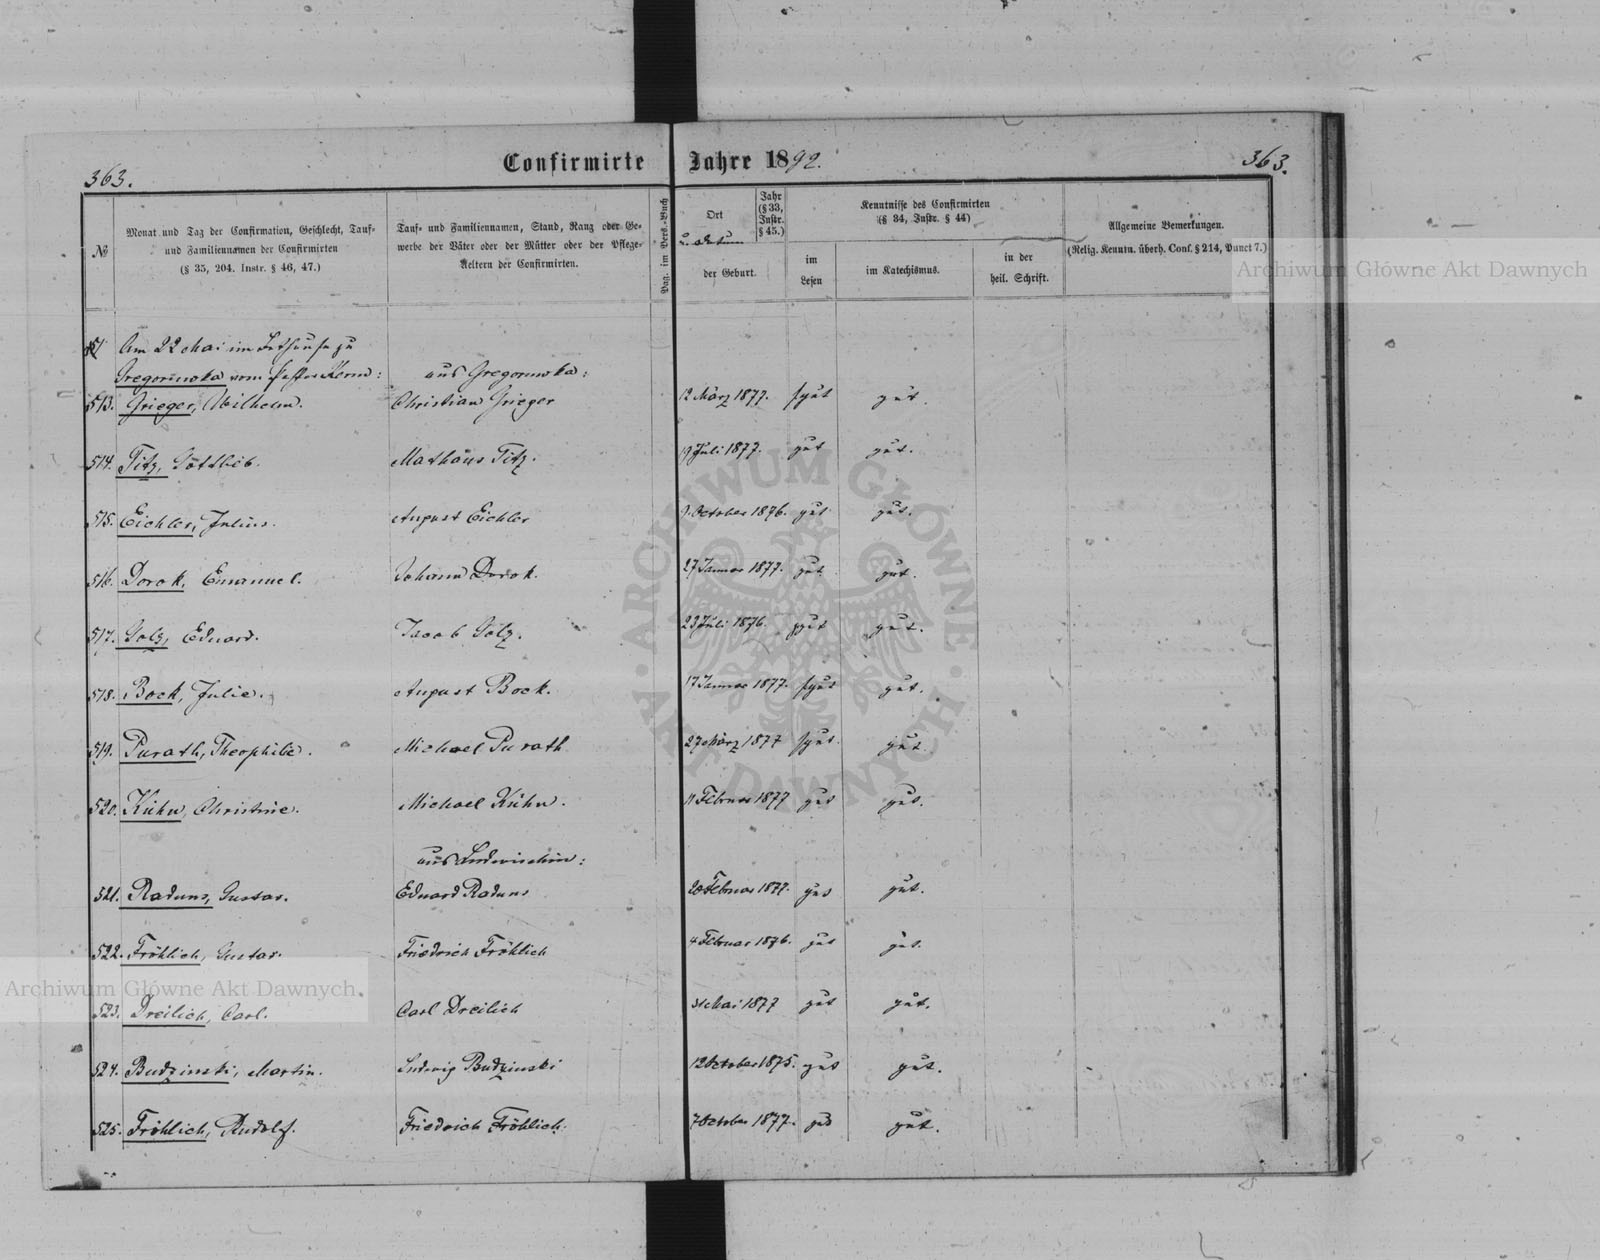 363.
Confirmirte Jahre 1892.
363.
№
Monat und Tag der Confirmation, Geschlecht, Tauf-
und Familiennamen der Confirmirten
(§ 35, 204. Instr. § 46, 47.)
Tauf- und Familiennamen, Stand, Rang oder Ge-
werbe der Väter oder der Mütter oder der Pflege-
Aeltern der Confirmirten.
Pag. im Pers.-Buch
Ort
u. Datum
der Geburt.
Jahr
(§ 33,
Instr.
§ 45.)
Kenntnisse des Confirmirten
(§ 34, Instr. § 44)
im
Lesen
im Katechismus.
in der
heil. Schrift.
Allgemeine Bemerkungen.
(Relig. Kenntn. überh. Conf. § 214, Punct 7.)
Archiwum Główne Akt Dawnych
Am 22 Mai im Bethause zu
Gregoruwka vom Pastor
aus Gregoruwka:
513. Grieger, Wilhelm. Christian Grieger 12 März 1877. sgut gut.
514. Titz, Gottlieb. Mathäus Titz. 19 Juli 1877. gut gut.
515. Eichler, Julius. August Eichler October 1876. gut gut.
516. Dorok, Emanuel. Johann Dorok. 27 Januar 1877. gut gut.
517. Golz, Eduard. Jacob Golz. 23 Juli 1876. gut gut.
518. Bock, Julie. August Bock. 17 Januar 1877. sgut gut.
519. Purath, Theophilie. Michael Purath 27 März 1877 sgut. gut
520. Kühn, Christine. Michael Kühn. 11 Februar 1877 gut gut.
aus Ludwischin:
521. Raduns, Gustav. Eduard Raduns 20 Februar 1877. gut gut.
522. Fröhlich, Gustav. Friedrich Fröhlich 4 Februar 1876. gut gut.
Archiwum Główne Akt Dawnych
523. Dreilich, Carl. Carl Dreilich 31 Mai 1877 gut gut.
524. Budzinski, Martin. Ludwig Budzinski 12 October 1875. gut gut.
525. Fröhlich, Rudolf. Friedrich Fröhlich. 7 October 1877. gut gut.
ARCHIWUM GŁÓWNE AKT DAWNYCH